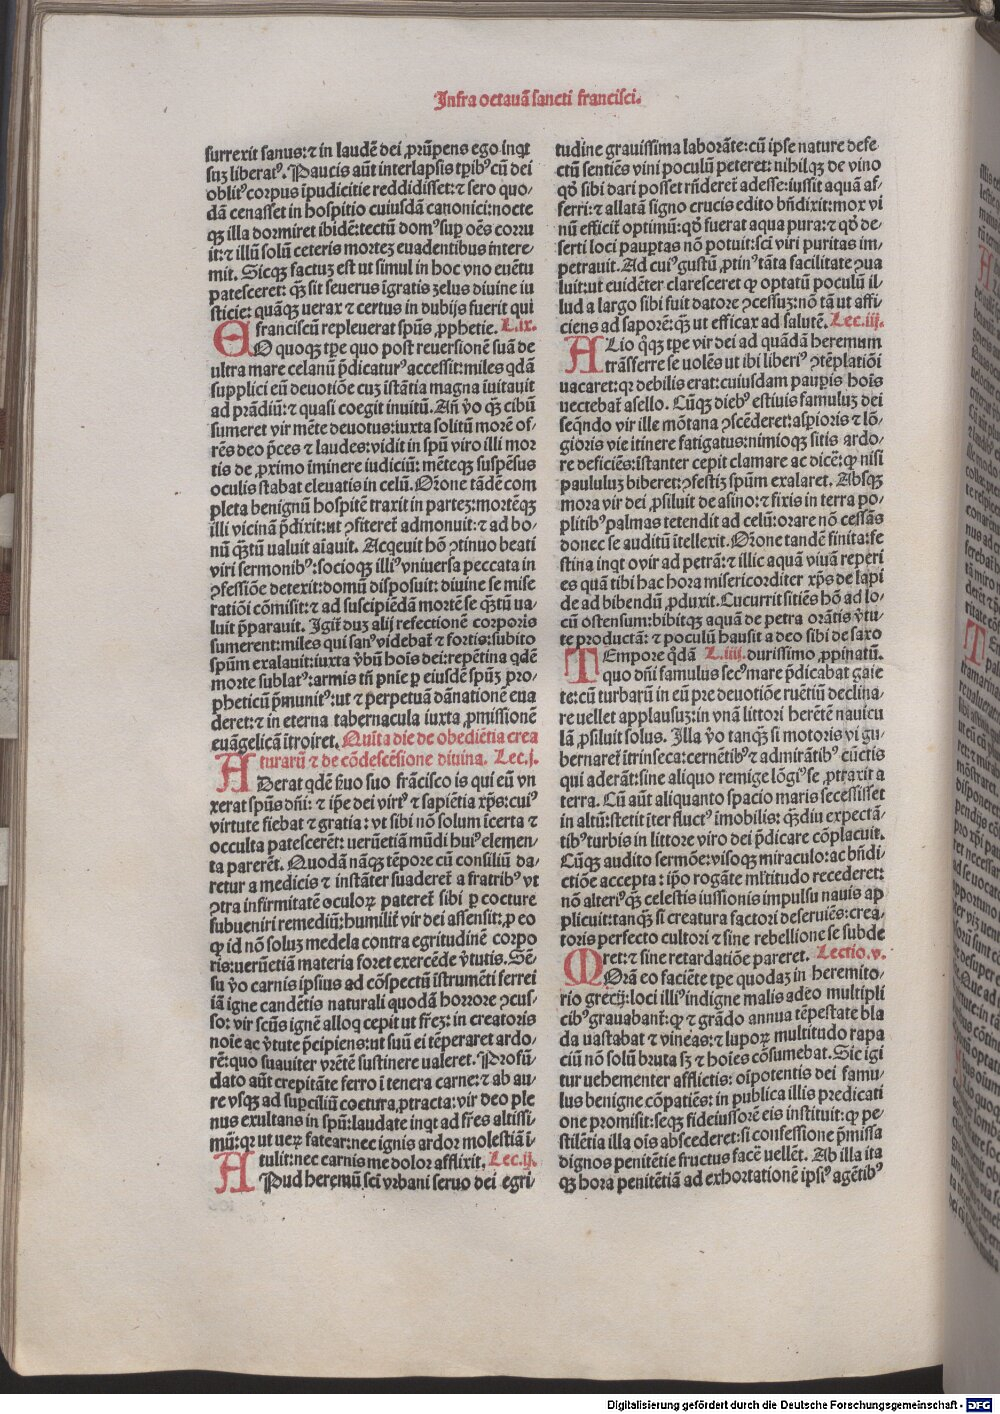 Infra octauā sancti francisci.
surrexit sanus: ⁊ in laudē dei ꝓrūpens ego inqt
suꝫ liberatꝰ. Paucis aūt interlapsis tꝑibꝰ cū dei
oblitꝰ corpus īpudicitie reddidisset: ⁊ sero quo-
dā cenasset in hospitio cuiusdā canonici: nocte
qꝫ illa dormiret ibidē: tectū domꝰ suꝑ oēs corru
it: ⁊ illū solū ceteris morteꝫ euadentibus intere-
mit. Sicqꝫ factuꝫ est ut simul in hoc vno euētu
patesceret: qꝫ sit seuerus īgratis zelus diuine iu
sticie: quāqꝫ uerax ⁊ certus in dubijs fuerit qui
franciscū repleuerat spūs ꝓphetie. L.ix.
EO quoqꝫ tꝑe quo post reuersionē suā de
ultra mare celanū p̄dicaturꝰ accessit: miles qdā
supplici eū deuotiōe cuꝫ īstātia magna iuitauit
ad prādiū: ⁊ quasi coegit inuitū. Añ v̄o qꝫ cibū
sumeret vir mēte deuotus: iuxta solitū morē of-
rēs deo p̄ces ⁊ laudes: vidit in spū viro illi mor
tis de ꝓximo īminere iudiciū: mēteqꝫ suspēsus
oculis stabat eleuatis in celū. Orōne tādē com
pleta benignū hospitē traxit in parteꝫ: mortēqꝫ
illi vicinā p̄dixit: ut ꝯfiteret̄ admonuit: ⁊ ad bo-
nū qꝫtū ualuit aīauit. Acqeuit hō ꝯtinuo beati
viri sermonibꝰ: socioqꝫ illiꝰ vniuersa peccata in
ꝯfessiōe detexit: domū disposuit: diuine se mise
ratiōi cōmisit: ⁊ ad suscipiēdā mortē se qꝫtū ua-
luit p̄parauit. Igit̄ duꝫ alij refectionē corporis
sumerent: miles qui sanꝰ videbat̄ ⁊ fortis: subito
spūm exalauit: iuxta v̄bū hoīs dei: repētina qdē
morte sublatꝰ: armis tñ pnīe ꝑ eiusdē spūꝫ pro-
pheticū p̄munitꝰ: ut ⁊ perpetuā dānationē eua
deret: ⁊ in eterna tabernacula iuxta ꝓmissionē
euāgelicā ītroiret. Quīta die de obediētia crea
turarū ⁊ de cōdescēsione diuina. Lec.j.
ADerat qdē ẜuo suo frācisco is qui eū vn
xerat spūs dñi: ⁊ ip̄e dei virtꝰ ⁊ sapiētia xp̄s: cuiꝰ
virtute fiebat ⁊ gratia: vt sibi nō solum īcerta ⁊
occulta patescerēt: uerūetiā mūdi huiꝰ elemen-
ta parerēt. Quodā nāqꝫ tēpore cū consiliū da-
retur a medicis ⁊ instāter suaderet̄ a fratribꝰ vt
ꝯtra infirmitatē oculoꝝ pateret̄ sibi ꝑ cocture
subueniri remediū: humilit̄ vir dei assensit: ꝓ eo
ꝙ id nō soluꝫ medela contra egritudinē corpo
ris: uerūetiā materia foret exercēde v̄tutis. Sē-
su v̄o carnis ipsius ad cōspectū īstrumēti ferrei
iā igne candētis naturali quodā horrore ꝯcus-
so: vir scūs ignē alloq̄ cepit ut fr̄eꝫ: in creatoris
noīe ac v̄tute p̄cipiens: ut suū ei tēperaret ardo-
rē: quo suauiter vrētē sustinere ualeret. Profū-
dato aūt crepitāte ferro ī tenera carne: ⁊ ab au-
re vsqꝫ ad suꝑciliū coctura ꝓtracta: vir deo ple
nus exultans in spū: laudate inqt ad fr̄es altissi-
mū: qꝛ ut ueꝝ fatear: nec ignis ardor molestiā ī-
tulit: nec carnis me dolor afflixit. Lec.ij.
APud heremū scī vrbani seruo dei egri-
tudine grauissima laborāte: cū ipse nature defe
ctū sentiēs vini poculū peteret: nihilqꝫ de vino
qd̄ sibi dari posset rn̄deret̄ adesse: iussit aquā af-
ferri: ⁊ allatā signo crucis edito bn̄dixit: mox vi
nū efficit̄ optimū: qd̄ fuerat aqua pura: ⁊ qd̄ de-
serti loci pauꝑtas nō potuit: scī viri puritas im-
petrauit. Ad cuiꝰ gustū ꝓtinꝰ tāta facilitate ꝯua
luit: ut euidēter claresceret ꝙ optatū poculū il-
lud a largo sibi fuit datore ꝯcessuꝫ: nō tā ut affi-
ciens ad saporē: qꝫ ut efficax ad salutē. Lec.iij.
ALio qꝫ tꝑe vir dei ad quādā heremum
trāsferre se uolēs ut ibi liberiꝰ ꝯtēplatiōi
uacaret: qꝛ debilis erat: cuiusdam pauꝑis hoīs
uectebat̄ asello. Cūqꝫ diebꝰ estiuis famuluꝫ dei
seqndo vir ille mōtana ꝯscēderet: asꝑioris ⁊ lō-
gioris vie itinere fatigatus: nimioqꝫ sitis ardo-
re deficiēs: īstanter cepit clamare ac dicē: ꝙ nisi
paululuꝫ biberet: ꝯfestiꝫ spūm exalaret. Absqꝫ
mora vir dei ꝓsiluit de asino: ⁊ fixis in terra po-
plitibꝰ palmas tetendit ad celū: orare nō cessās
donec se auditū ītellexit. Orōne tandē finita: fe
stina inqt o vir ad petrā: ⁊ illic aquā viuā reperi
es quā tibi hac hora misericorditer xp̄s de lapi
de ad bibendū ꝓduxit. Cucurrit sitiēs hō ad lo-
cū ostensum: bibitqꝫ aquā de petra orātis v̄tu-
te productā: ⁊ poculū hausit a deo sibi de saxo
TEmpore qdā L.iiij. durissimo ꝓpinatū.
quo dñi famulus secꝰ mare p̄dicabat gaie
te: cū turbarū in eū pre deuotiōe ruētiū declina-
re uellet applausuꝫ: in vnā littori herētē nauicu
lā ꝓsiluit solus. Illa v̄o tanqꝫ si motoris vi gu-
bernaret̄ ītrinseca: cernētibꝰ ⁊ admirātibꝰ cūctis
qui aderāt: sine aliquo remige lōgiꝰ se ꝓtraxit a
terra. Cū aūt aliquanto spacio maris secessisset
in altū: stetit īter fluctꝰ īmobilis: qꝫdiu expectā-
tibꝰ turbis in littore viro dei p̄dicare cōplacuit.
Cūqꝫ audito sermōe: visoqꝫ miraculo: ac bn̄di-
ctiōe accepta: ip̄o rogāte ml̄titudo recederet:
nō alteriꝰqꝫ celestis iussionis impulsu nauis ap
plicuit: tanqꝫ si creatura factori deseruiēs: crea-
toris perfecto cultori ⁊ sine rebellione se subde
ret: ⁊ sine retardatiōe pareret. Lectio.v.
MOrā eo faciēte tꝑe quodaꝫ in heremito-
rio grecij: loci illiꝰ indigne malis adeo multipli
cibꝰ grauabant̄: ꝙ ⁊ grādo annua tēpestate bla
da uastabat ⁊ vineas: ⁊ lupoꝝ multitudo rapa
ciū nō solū bruta sꝫ ⁊ hoīes cōsumebat. Sic igi
tur uehementer afflictis: oīpotentis dei famu-
lus benigne cōpatiēs: in publica illis predicati
one promisit: seqꝫ fideiussorē eis instituit: ꝙ pe-
stilētia illa oīs abscederet: si confessione p̄missa
dignos penitētie fructus facē uellēt. Ab illa ita
qꝫ hora penitētiā ad exhortationē ipsiꝰ agētibꝰ
Digitalisierung gefördert durch die Deutsche Forschungsgemeinschaft - DFG